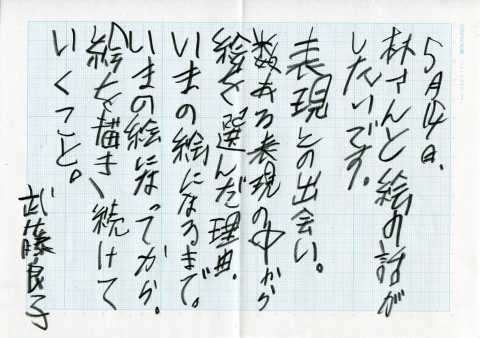 5月14日、
林さんと絵の話が
したいです。
表現との出会い。
数ある表現の中から
絵を選んだ理由。
いまの絵になるまで。
いまの絵になってから。
絵を描き続けて
いくこと。
武藤良子